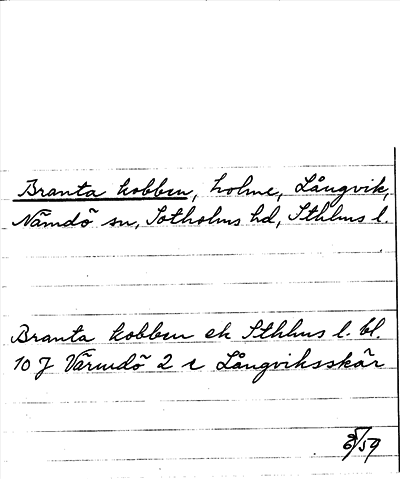 Branta kobben, holme, Långvik,
Nämdö sn, Sotholms hd, Sthlms l.
Branta kobben ek Sthlms l. bl.
10 J Värmdö 2 r Långviksskär
/59